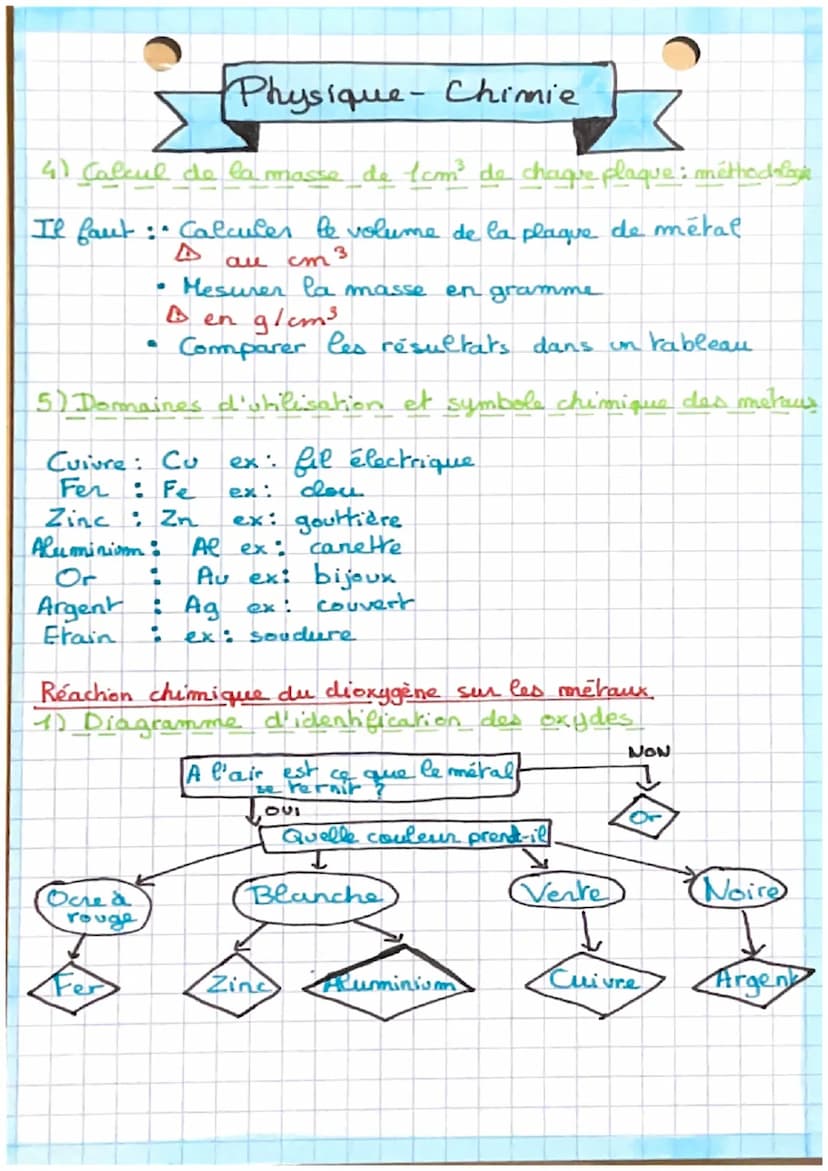 Physique - Chimie
4) Calcul de la masse de 1cm³ de chaque plaque : méthodologie
Il faut : • Calculer le volume de la plaque de métal
⚠ au cm³
• Mesurer la masse en gramme
⚠ en g/cm³
• Comparer les résultats dans un tableau
5) Domaines d'utilisation et symbole chimique des métaux
Cuivre : Cu ex : fil électrique
Fer : Fe ex : clou
Zinc : Zn ex : gouttière
Aluminium : Al ex : canette
Or : Au ex : bijoux
Argent : Ag ex : couvert
Etain : ex : soudure
Réaction chimique du dioxygène sur les métaux
1) Diagramme d'identification des oxydes
A l'air est ce que le métal
se ternir ?
NON
Or
OUI
Quelle couleur prend-il
Ocre à
rouge
Blanche
Verte
Noire
Fer
Zinc
Aluminium
Cuivre
Argent